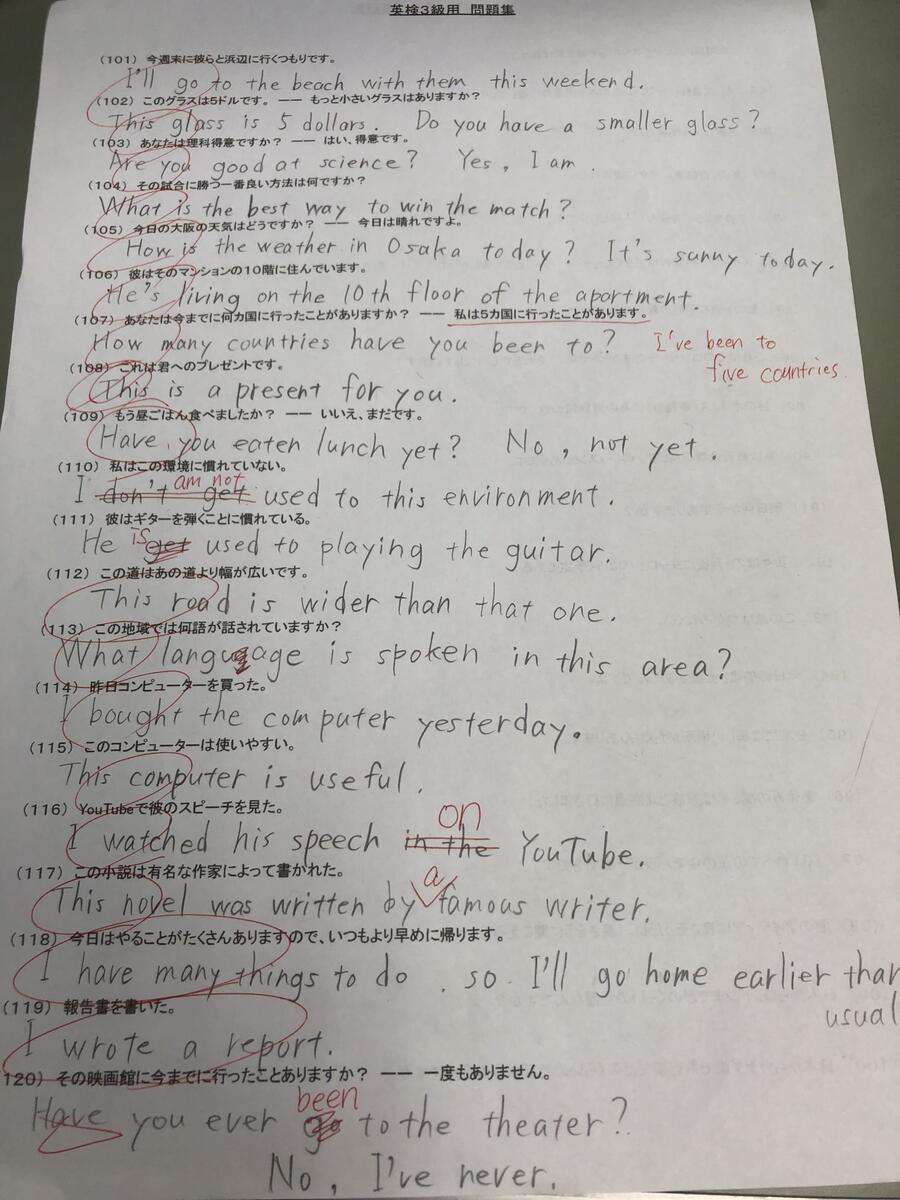 英検3級用 問題集
(101) 今週末に彼らと浜辺に行くつもりです。
I'll go to the beach with them this weekend.
(102) このグラスは5ドルです。 —— もっと小さいグラスはありますか？
This glass is 5 dollars. Do you have a smaller glass?
(103) あなたは理科得意ですか？ —— はい、得意です。
Are you good at science? Yes, I am.
(104) その試合に勝つ一番良い方法は何ですか？
What is the best way to win the match?
(105) 今日の大阪の天気はどうですか？ —— 今日は晴れですよ。
How is the weather in Osaka today? It's sunny today.
(106) 彼はそのマンションの10階に住んでいます。
He's living on the 10th floor of the apartment.
(107) あなたは今までに何カ国に行ったことがありますか？ —— 私は5カ国に行ったことがあります。
How many countries have you been to? I've been to
five countries.
(108) これは君へのプレゼントです。
This is a present for you.
(109) もう昼ごはん食べましたか？ —— いいえ、まだです。
Have you eaten lunch yet? No, not yet.
(110) 私はこの環境に慣れていない。
am not
I don't get used to this environment.
(111) 彼はギターを弾くことに慣れている。
He is get used to playing the guitar.
(112) この道はあの道より幅が広いです。
This road is wider than that one.
(113) この地域では何語が話されていますか？
What language is spoken in this area?
(114) 昨日コンピューターを買った。
I bought the computer yesterday.
(115) このコンピューターは使いやすい。
This computer is useful.
(116) YouTubeで彼のスピーチを見た。
on
I watched his speech in the YouTube.
(117) この小説は有名な作家によって書かれた。
a
This novel was written by famous writer.
(118) 今日はやることがたくさんありますので、いつもより早めに帰ります。
I have many things to do . so I'll go home earlier than
usual
(119) 報告書を書いた。
I wrote a report.
120) その映画館に今までに行ったことありますか？ —— 一度もありません。
been
Have you ever go to the theater?
No, I've never.